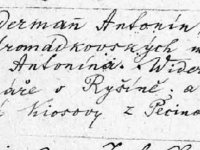 dermañ Antonín,
romádkovských m
Antonína Wider
náře v Ryšíně, a
Kiosovy z Pecino